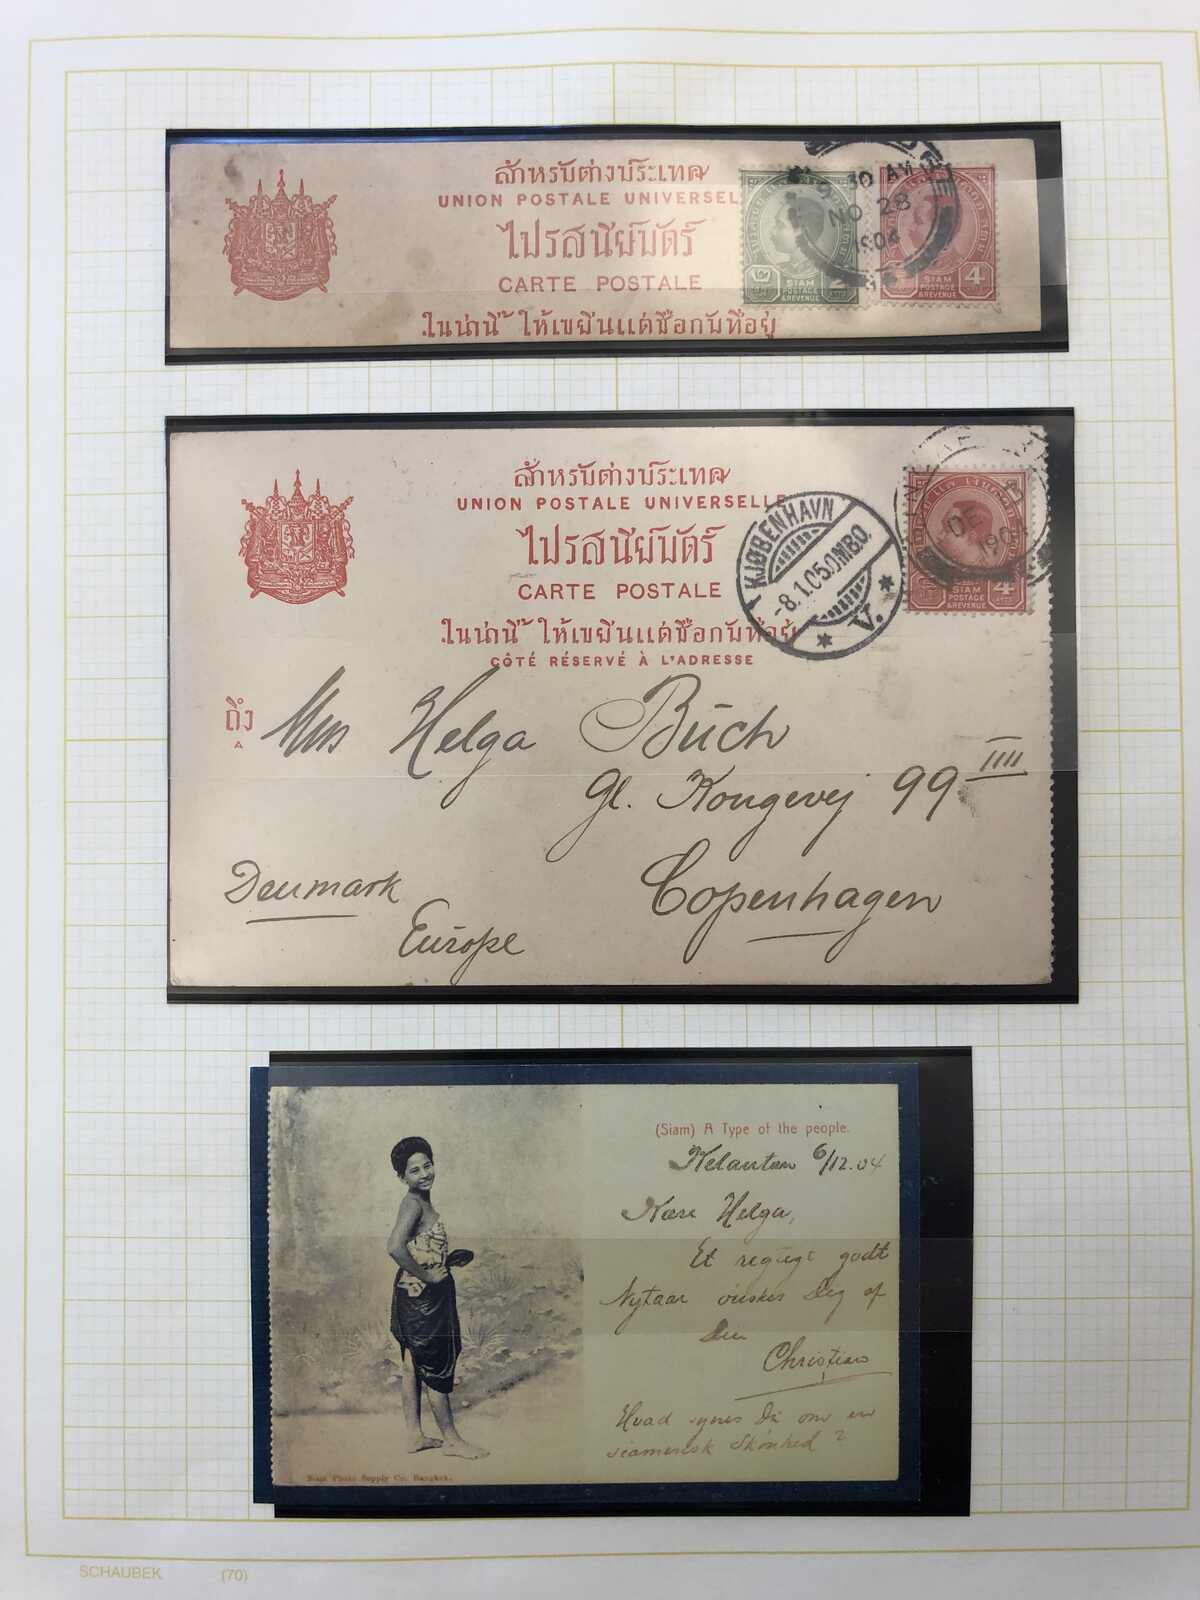 สำหรับต่างประเทศ
UNION POSTALE UNIVERSEL
ไปรสนีย์บัตร์
CARTE POSTALE
ในน่านี้ ให้เขียนแต่ชื่อกับที่อยู่
2
SIAM
POSTAGE
& REVENUE
4
SIAM
POSTAGE
& REVENUE
30 AM
NO 28
1904
สำหรับต่างประเทศ
UNION POSTALE UNIVERSELLE
ไปรสนีย์บัตร์
CARTE POSTALE
ในน่านี้ ให้เขียนแต่ชื่อกับที่อยู่
CÔTÉ RÉSERVÉ À L'ADRESSE
KJØBENHAVN
-8.1.05.0MB.O.
V.
DE
190
SIAM
POSTAGE
& REVENUE
4
ถึง
A
Miss Helga Buch
Gl. Kongevej 99 IIII
Copenhagen
Denmark
Europe
(Siam) A Type of the people.
Kelantan 6/12.04
Kære Helga,
Et rigtigt godt
Nytaar ønskes Deg af
Din
Christian
Hvad synes Du om en
siamesisk Skønhed?
Siam Photo Supply Co. Bangkok.
SCHAUBEK (70)